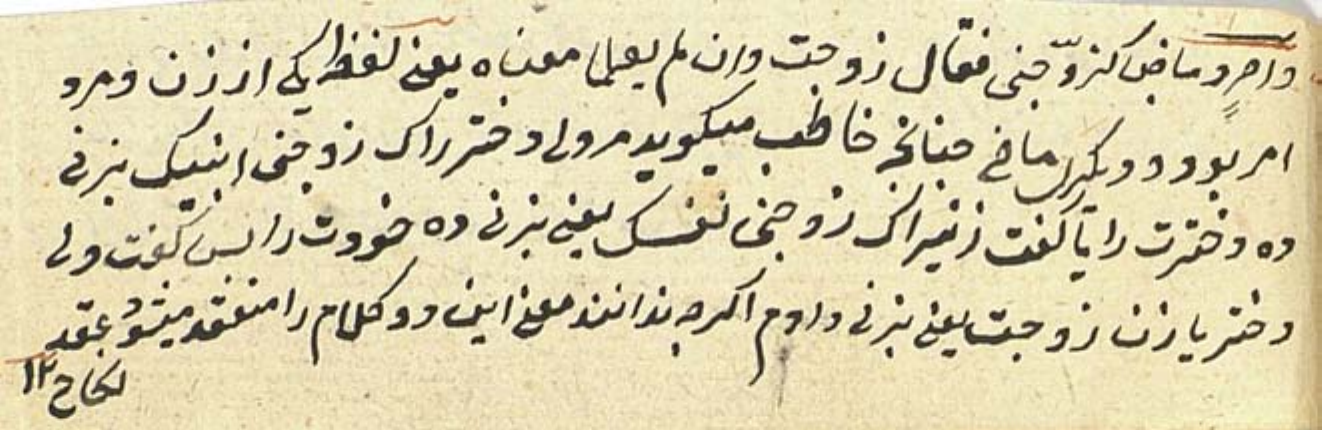 وامرٍ وماض كزوّجنی فقال زوجت وان لم یعلما معناه یعنی لفظ یکی از زن و مرد
امر بود و دیگری ماضی چنانچه خاطب میگوید مر ولی دختر را که زوجنی ابنتک بزنی
ده دخترت را یا گفت زنیرا که زوجنی نفسک یعنی بزنی ده خودت را پس گفت ولی
دختر یا زن زوجت یعنی بزنی دادم اگرچه ندانند معنی این دو کلام را منعقد میشود عقد
نکاح ۱۲